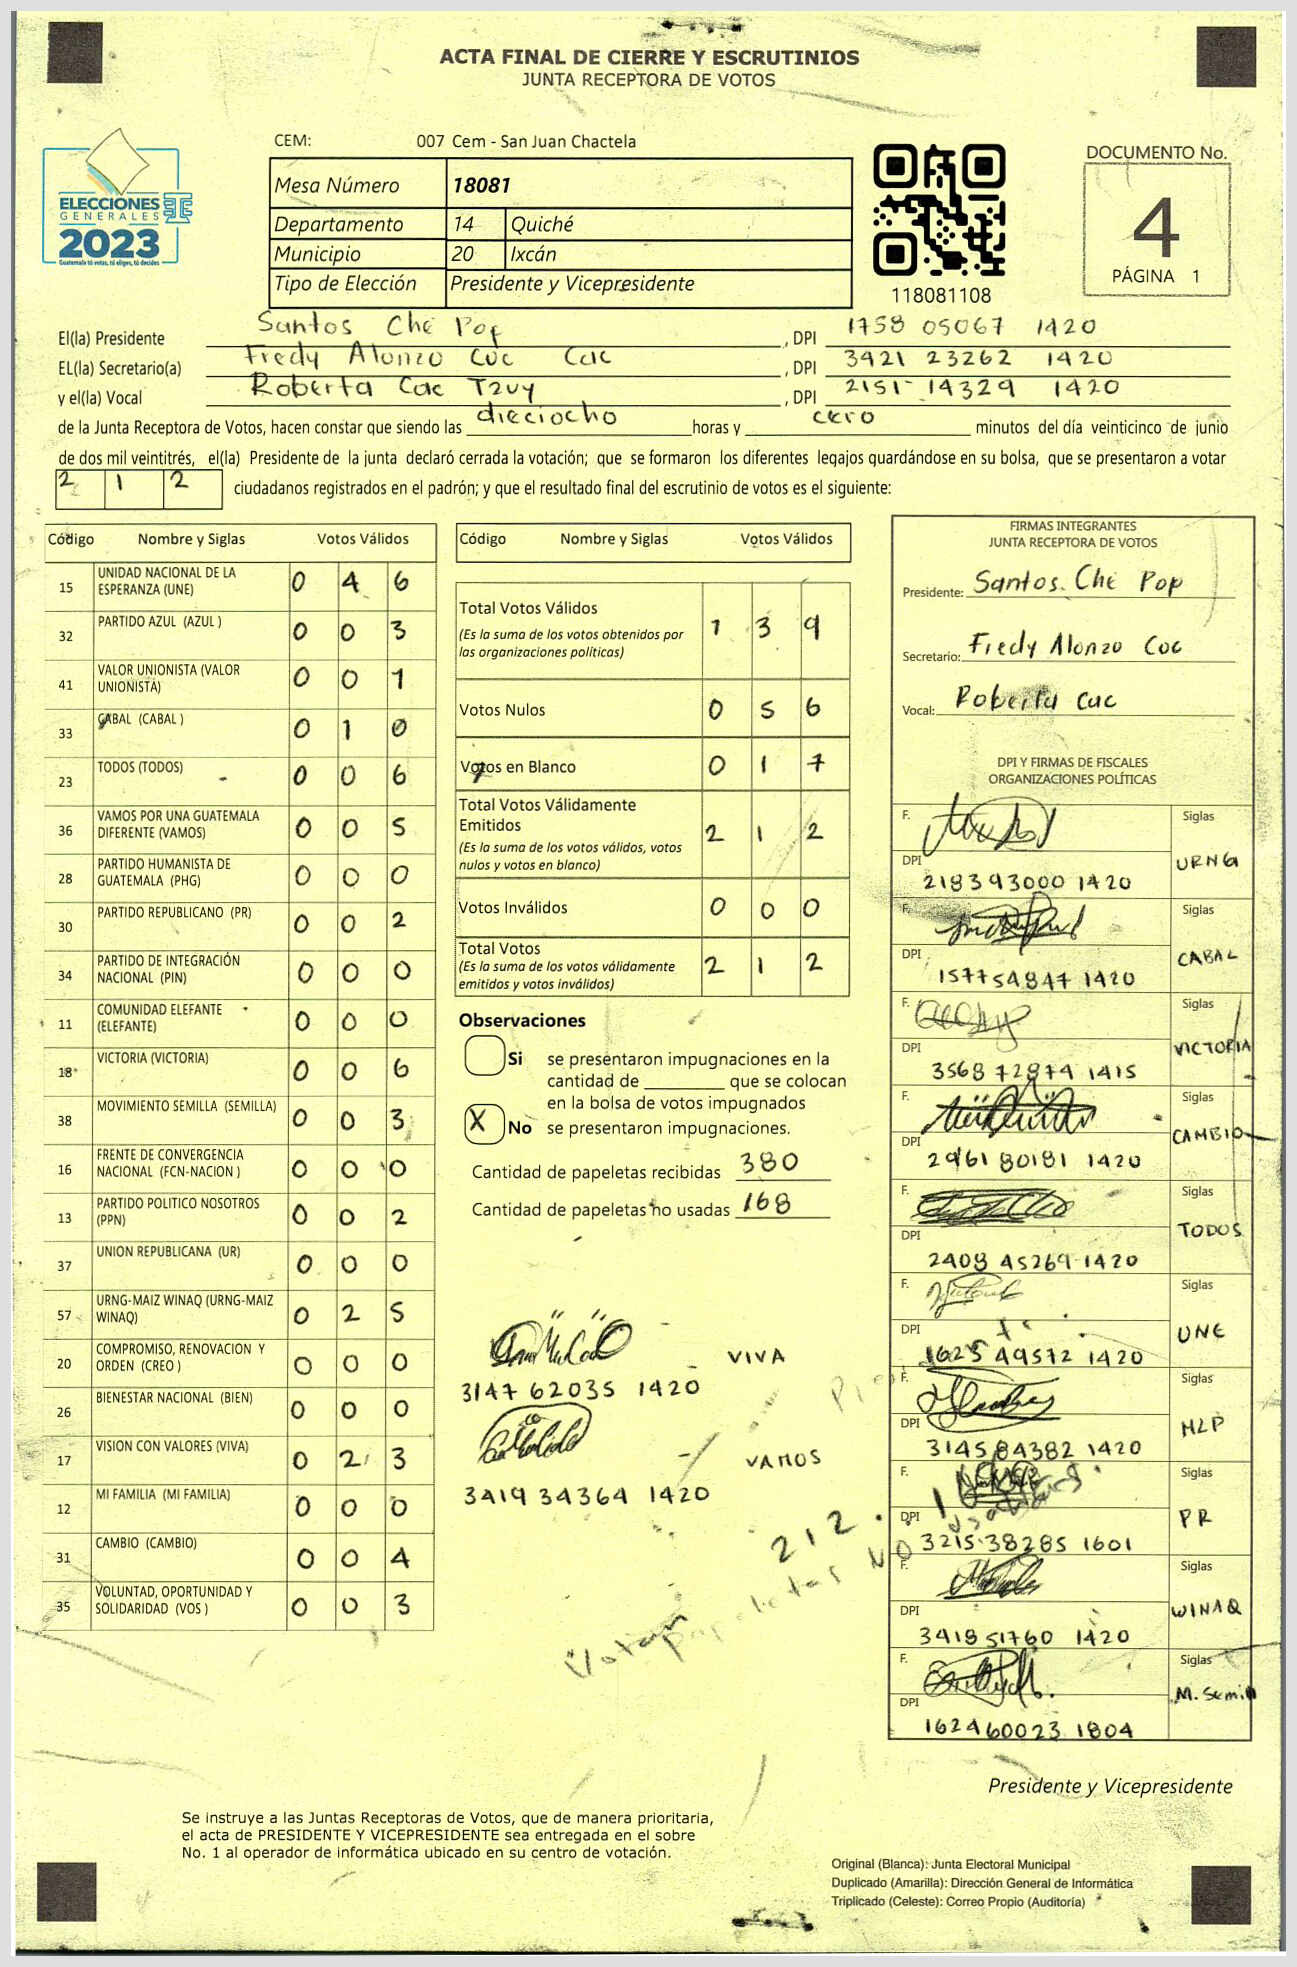 ACTA FINAL DE CIERRE Y ESCRUTINIOS
JUNTA RECEPTORA DE VOTOS
ELECCIONES
GENERALES
2023
Guatemala tú votas, tú eliges, tú decides
CEM: 007 Cem - San Juan Chactela
Mesa Número 18081
Departamento 14 Quiché
Municipio 20 Ixcán
Tipo de Elección Presidente y Vicepresidente
118081108
DOCUMENTO No.
4
PÁGINA 1
El(la) Presidente Santos Ché Pop , DPI 1758 05067 1420
EL(la) Secretario(a) Fredy Alonzo Cuc Cac , DPI 3421 23262 1420
y el(la) Vocal Roberta Cac Tzuy , DPI 2151 14329 1420
de la Junta Receptora de Votos, hacen constar que siendo las dieciocho horas y cero minutos del día veinticinco de junio
de dos mil veintitrés, el(la) Presidente de la junta declaró cerrada la votación; que se formaron los diferentes legajos guardándose en su bolsa, que se presentaron a votar
2 1 2 ciudadanos registrados en el padrón; y que el resultado final del escrutinio de votos es el siguiente:
Código Nombre y Siglas Votos Válidos
15 UNIDAD NACIONAL DE LA ESPERANZA (UNE) 0 4 6
32 PARTIDO AZUL (AZUL ) 0 0 3
41 VALOR UNIONISTA (VALOR UNIONISTA) 0 0 1
33 CABAL (CABAL ) 0 1 0
23 TODOS (TODOS) 0 0 6
36 VAMOS POR UNA GUATEMALA DIFERENTE (VAMOS) 0 0 5
28 PARTIDO HUMANISTA DE GUATEMALA (PHG) 0 0 0
30 PARTIDO REPUBLICANO (PR) 0 0 2
34 PARTIDO DE INTEGRACIÓN NACIONAL (PIN) 0 0 0
11 COMUNIDAD ELEFANTE (ELEFANTE) 0 0 0
18 VICTORIA (VICTORIA) 0 0 6
38 MOVIMIENTO SEMILLA (SEMILLA) 0 0 3
16 FRENTE DE CONVERGENCIA NACIONAL (FCN-NACION ) 0 0 0
13 PARTIDO POLITICO NOSOTROS (PPN) 0 0 2
37 UNION REPUBLICANA (UR) 0 0 0
57 URNG-MAIZ WINAQ (URNG-MAIZ WINAQ) 0 2 5
20 COMPROMISO, RENOVACION Y ORDEN (CREO ) 0 0 0
26 BIENESTAR NACIONAL (BIEN) 0 0 0
17 VISION CON VALORES (VIVA) 0 2 3
12 MI FAMILIA (MI FAMILIA) 0 0 0
31 CAMBIO (CAMBIO) 0 0 4
35 VOLUNTAD, OPORTUNIDAD Y SOLIDARIDAD (VOS ) 0 0 3
Código Nombre y Siglas Votos Válidos
Total Votos Válidos 1 3 9
(Es la suma de los votos obtenidos por
las organizaciones políticas)
Votos Nulos 0 5 6
Votos en Blanco 0 1 7
Total Votos Válidamente
Emitidos 2 1 2
(Es la suma de los votos válidos, votos
nulos y votos en blanco)
Votos Inválidos 0 0 0
Total Votos 2 1 2
(Es la suma de los votos válidamente
emitidos y votos inválidos)
Observaciones
Si se presentaron impugnaciones en la
cantidad de ________ que se colocan
en la bolsa de votos impugnados
X No se presentaron impugnaciones.
Cantidad de papeletas recibidas 380
Cantidad de papeletas no usadas 168
VIVA
3147 62035 1420
VAMOS
3419 34364 1420
212
Votaron
papeletas NO
FIRMAS INTEGRANTES
JUNTA RECEPTORA DE VOTOS
Presidente: Santos Ché Pop
Secretario: Fredy Alonzo Cuc
Vocal: Roberta Cac
DPI Y FIRMAS DE FISCALES
ORGANIZACIONES POLÍTICAS
F. Siglas
URNG
DPI
218393000 1420
F. Siglas
CABAL
DPI
157754847 1420
F. Siglas
VICTORIA
DPI
3568 72874 1415
F. Siglas
CAMBIO
DPI
2961 80181 1420
F. Siglas
TODOS
DPI
2408 45269 1420
F. Siglas
UNE
DPI
1625 49572 1420
F. Siglas
MLP
DPI
3145 84382 1420
F. Siglas
PR
DPI
3215 38285 1601
F. Siglas
WINAQ
DPI
3418 51760 1420
F. Siglas
M. Semill
DPI
1624 60023 1804
Presidente y Vicepresidente
Se instruye a las Juntas Receptoras de Votos, que de manera prioritaria,
el acta de PRESIDENTE Y VICEPRESIDENTE sea entregada en el sobre
No. 1 al operador de informática ubicado en su centro de votación.
Original (Blanca): Junta Electoral Municipal
Duplicado (Amarilla): Dirección General de Informática
Triplicado (Celeste): Correo Propio (Auditoría)